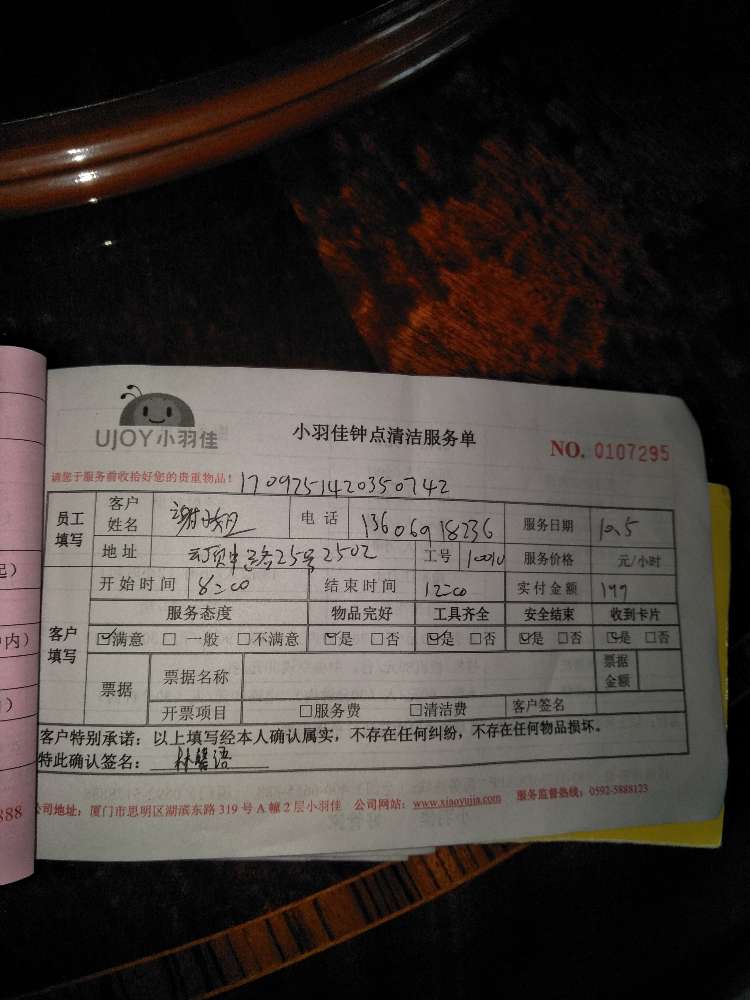 UJOY小羽佳
小羽佳钟点清洁服务单
NO. 0107295
请您于服务前收拾好您的贵重物品！
1709251420350742
员工填写 客户姓名 谢 电话 13606918236 服务日期 10.5
地址 云顶中路25号2502 工号 服务价格 元/小时
客户填写 开始时间 8:00 结束时间 12:00 实付金额
服务态度 物品完好 工具齐全 安全结束 收到卡片
☑满意 □一般 □不满意 ☑是 □否 ☑是 □否 ☑是 □否 ☑是 □否
票据 票据名称 票据金额
开票项目 □服务费 □清洁费 客户签名
客户特别承诺：以上填写经本人确认属实，不存在任何纠纷，不存在任何物品损坏。
特此确认签名： 林 语
公司地址：厦门市思明区湖滨东路319号A幢2层小羽佳 公司网站：www.xiaoyujia.com 服务监督热线：0592-5888123
起）
内）
）
888